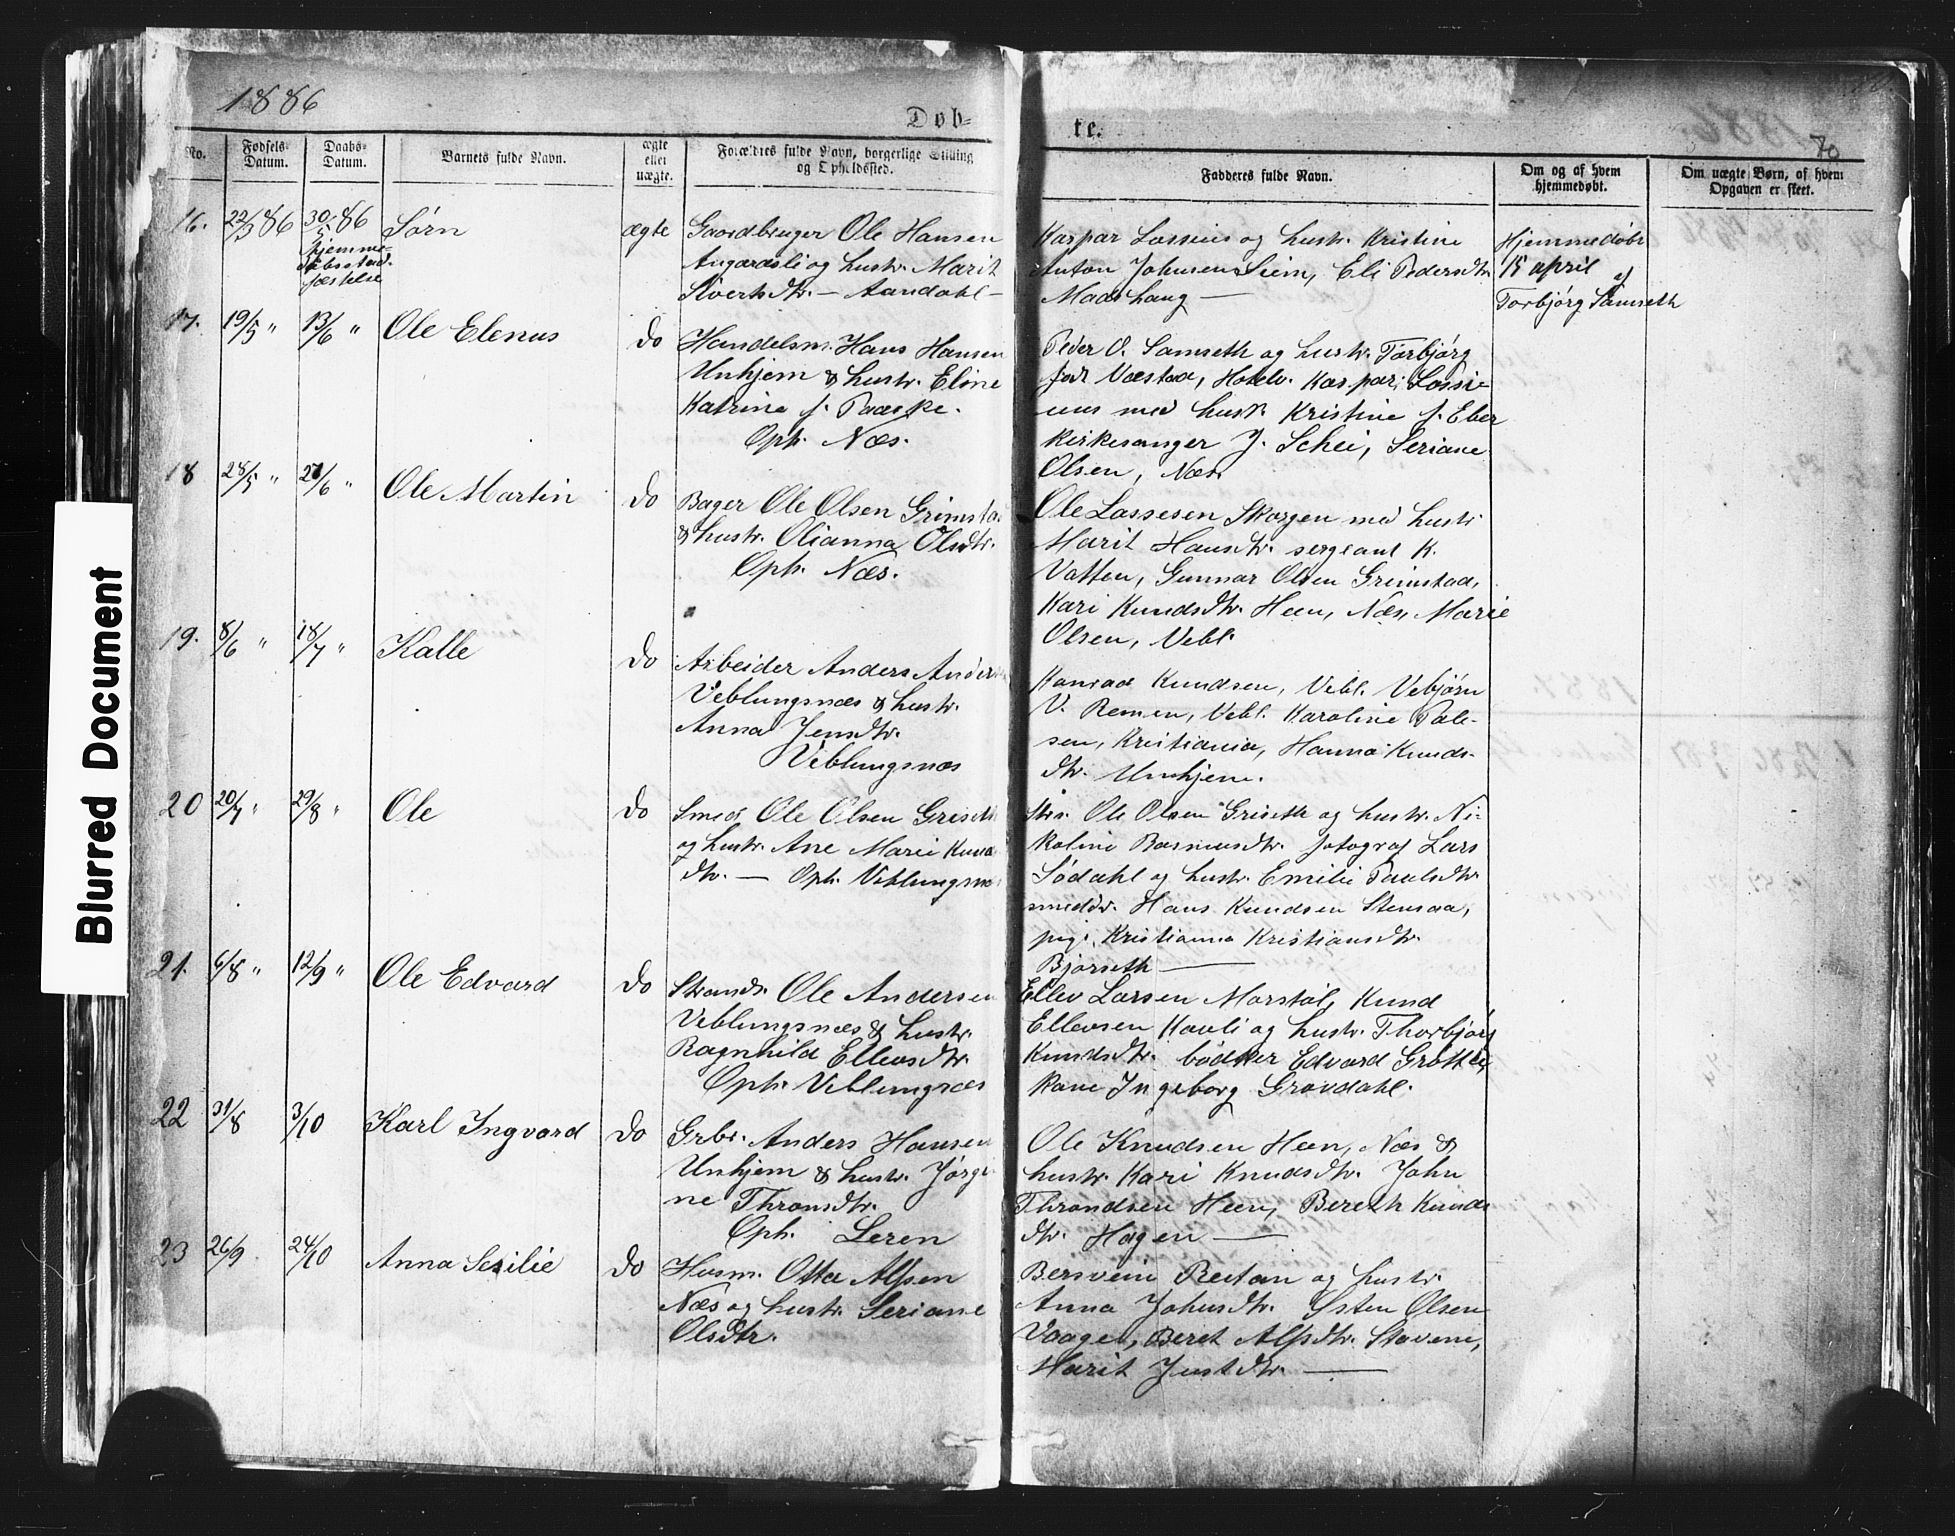 1886
Døb-
te.
80
No.
Fødsels-Datum.
Daabs-Datum.
Barnets fulde Navn.
ægte eller uægte.
Forældres fulde Navn, borgerlige Stilling og Opholdssted.
Fadderes fulde Navn.
Om og af hvem hjemmedøbt.
Om uægte Børn, af hvem Opgaven er skeet.
Blurred Document
16. 22/3 86 30/5 86 Sørn ægte
hjemme-
dåbsstad-
fæstelse
Gaardbruger Ole Hansen
Angardsli og hustr. Marit
Sivertsdtr. — Aandahl —
Kaspar Lossius og hustr. Kristine
Anton Johnsen Seim, Eli Pedersdtr.
Madshaug —
Hjemmedøbt
15 april
af
Torbjørg Samseth
17. 19/5 " 13/6 " Ole Elenus do
Handelsm. Hans Hansen
Unhjem & hustr. Eline
Katrine f. Paaske.
Oph. Næs.
Peder O. Samseth og hustr. Torbjørg
født Næstad, Hotelv. Kaspar Lossi-
us med hustr. Kristine f. Eber
Kirkesanger J. Schei, Seriane
Olsen, Næs
18 28/5 " 27/6 " Ole Martin do
Bager Ole Olsen Grimstad
& hustr. Olianna Olsdtr.
Oph. Næs.
Ole Lassesen Skorgen med hustr
Marit Hansdtr. sergeant K.
Vatten, Gunnar Olsen Grimstad,
Kari Knudsdtr. Heen, Næs, Marie
Olsen, Vebl.
19. 8/6 " 18/7 " Kalle do
Arbeider Anders Anders
Veblungsnæs & hustr.
Anna Jensdtr.
Veblungsnæs
Konrad Knudsen, Vebl. Vebjørn
V. Remen, Vebl. Karoline Pale-
sen, Kristiania, Hanna Knuds-
dtr. Unhjem.
20 20/7 " 29/8 " Ole do
Smed Ole Olsen Griseth
og hustr. Ane Marie Knuds
dtr. — Oph. Veblungsnæs
Ole Olsen Griseth og hustr. Ni-
koline Rasmusdtr. fotograf Lars
Sødahl og hustr. Emilie Paulsdtr.
smeddr. Hans Knudsen Stensaa,
pige Kristianna Kristiansdtr.
Bjørseth —
21. 6/8 " 12/9 " Ole Edvard do
Strands. Ole Andersen
Veblungsnæs & hustr.
Ragnhild Ellevsdtr.
Oph. Veblungsnæs
Ellev Larsen Marstøl, Knud
Ellevsen Kavli og hustr. Thorbjørg
Knudsdtr. bødker Edvard Grøtter,
kone Ingeborg Grøvdahl.
22 31/8 3/10 Karl Ingvard do
Grbr. Anders Hansen
Unhjem & hustr. Jørgi-
ne Thronsdtr.
Oph. Leren
Ole Knudsen Heen, Næs &
hustr. Kari Knudsdtr. John
Throndsen Heen, Bereth Knuds
dtr. Hagen —
23 26/9 24/10 Anna Sesilie do
Husm. Otte Alfsen
Næs og hustr. Seriane
Olsdtr.
Bersvein Reitan og hustr.
Anna Johnsdtr. Østen Olsen
Vaage, Beret Alfsdtr. Stavene,
Marit Justdtr. —